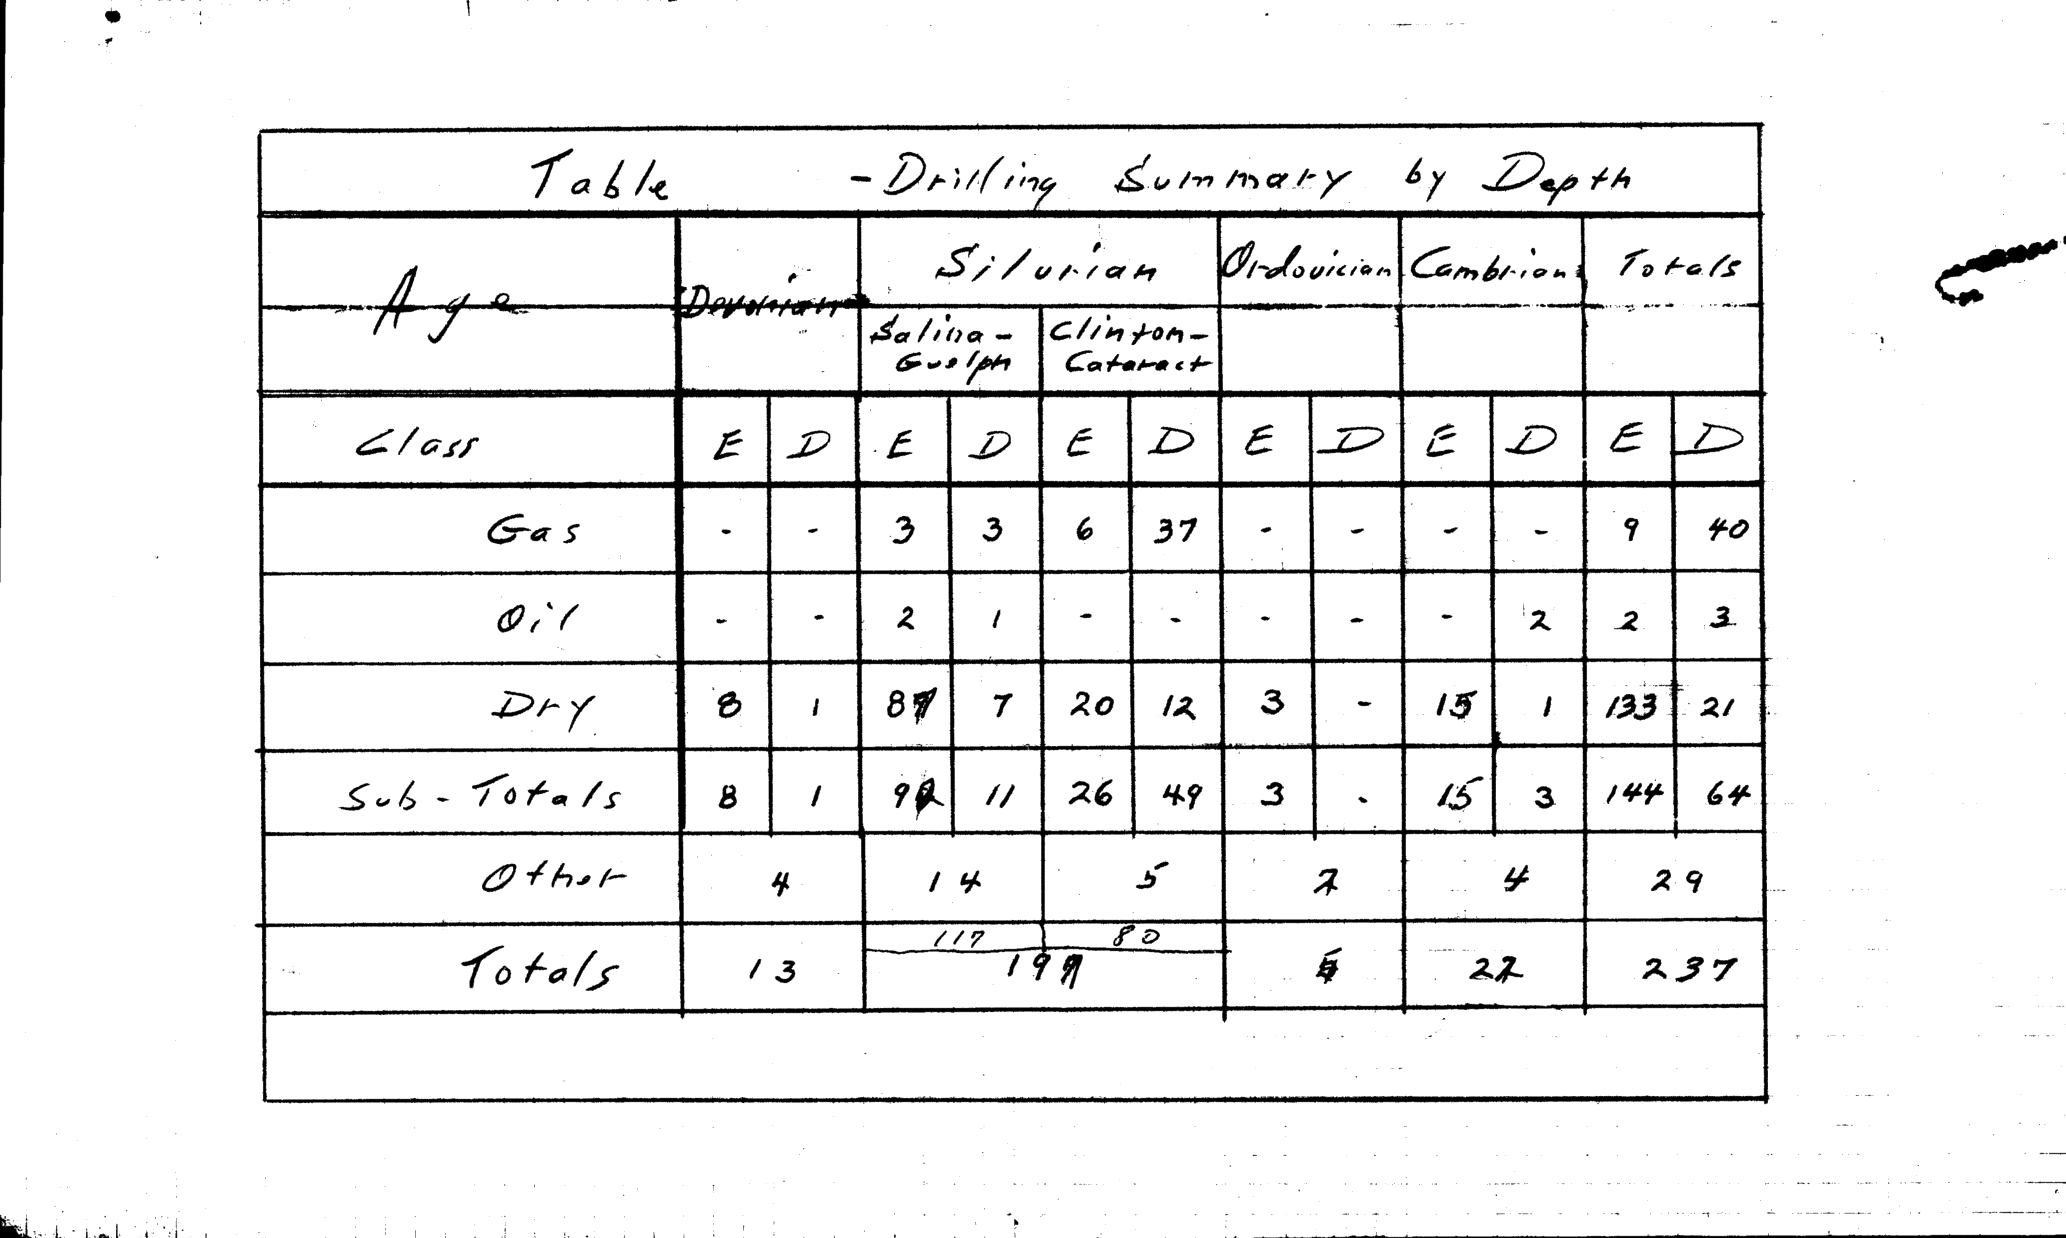 Table - Drilling Summary by Depth
Age Devonian Silurian Ordovician Cambrian Totals
Salina- Clinton-
Guelph Cataract
Class E D E D E D E D E D E D
Gas - - 3 3 6 37 - - - - 9 40
Oil - - 2 1 - - - - - 2 2 3
Dry 8 1 87 7 20 12 3 - 15 1 133 21
Sub-Totals 8 1 92 11 26 49 3 - 15 3 144 64
Other 4 14 5 2 4 29
117 80
Totals 13 197 5 22 237